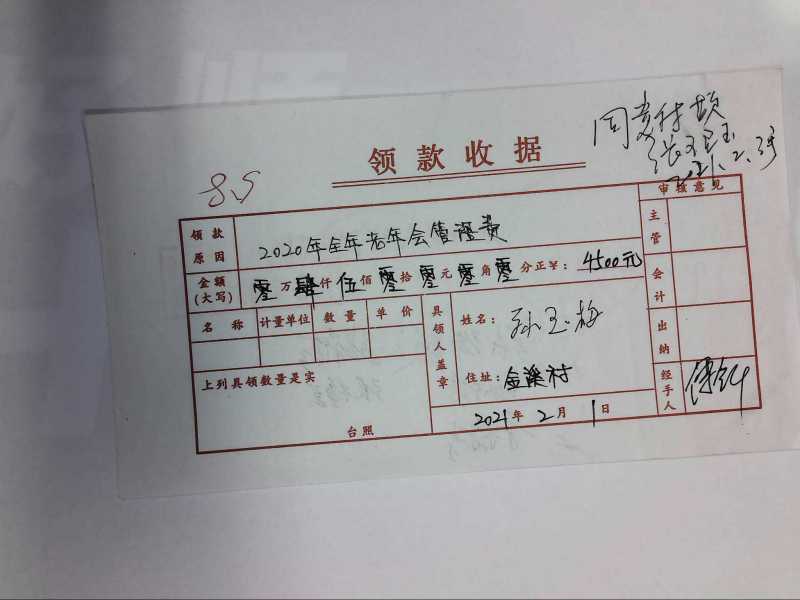 领款收据
8.5
2021.2.
审核意见
领款原因 2020年全年老年会管理费
主管
金额(大写) 零万肆仟伍佰零拾零元零角零分正¥: 4500元
会计
名称 计量单位 数量 单价
具领人盖章
姓名: 孙玉梅
出纳
上列具领数量是实
住址: 金溪村
经手人
台照
2021年2月1日